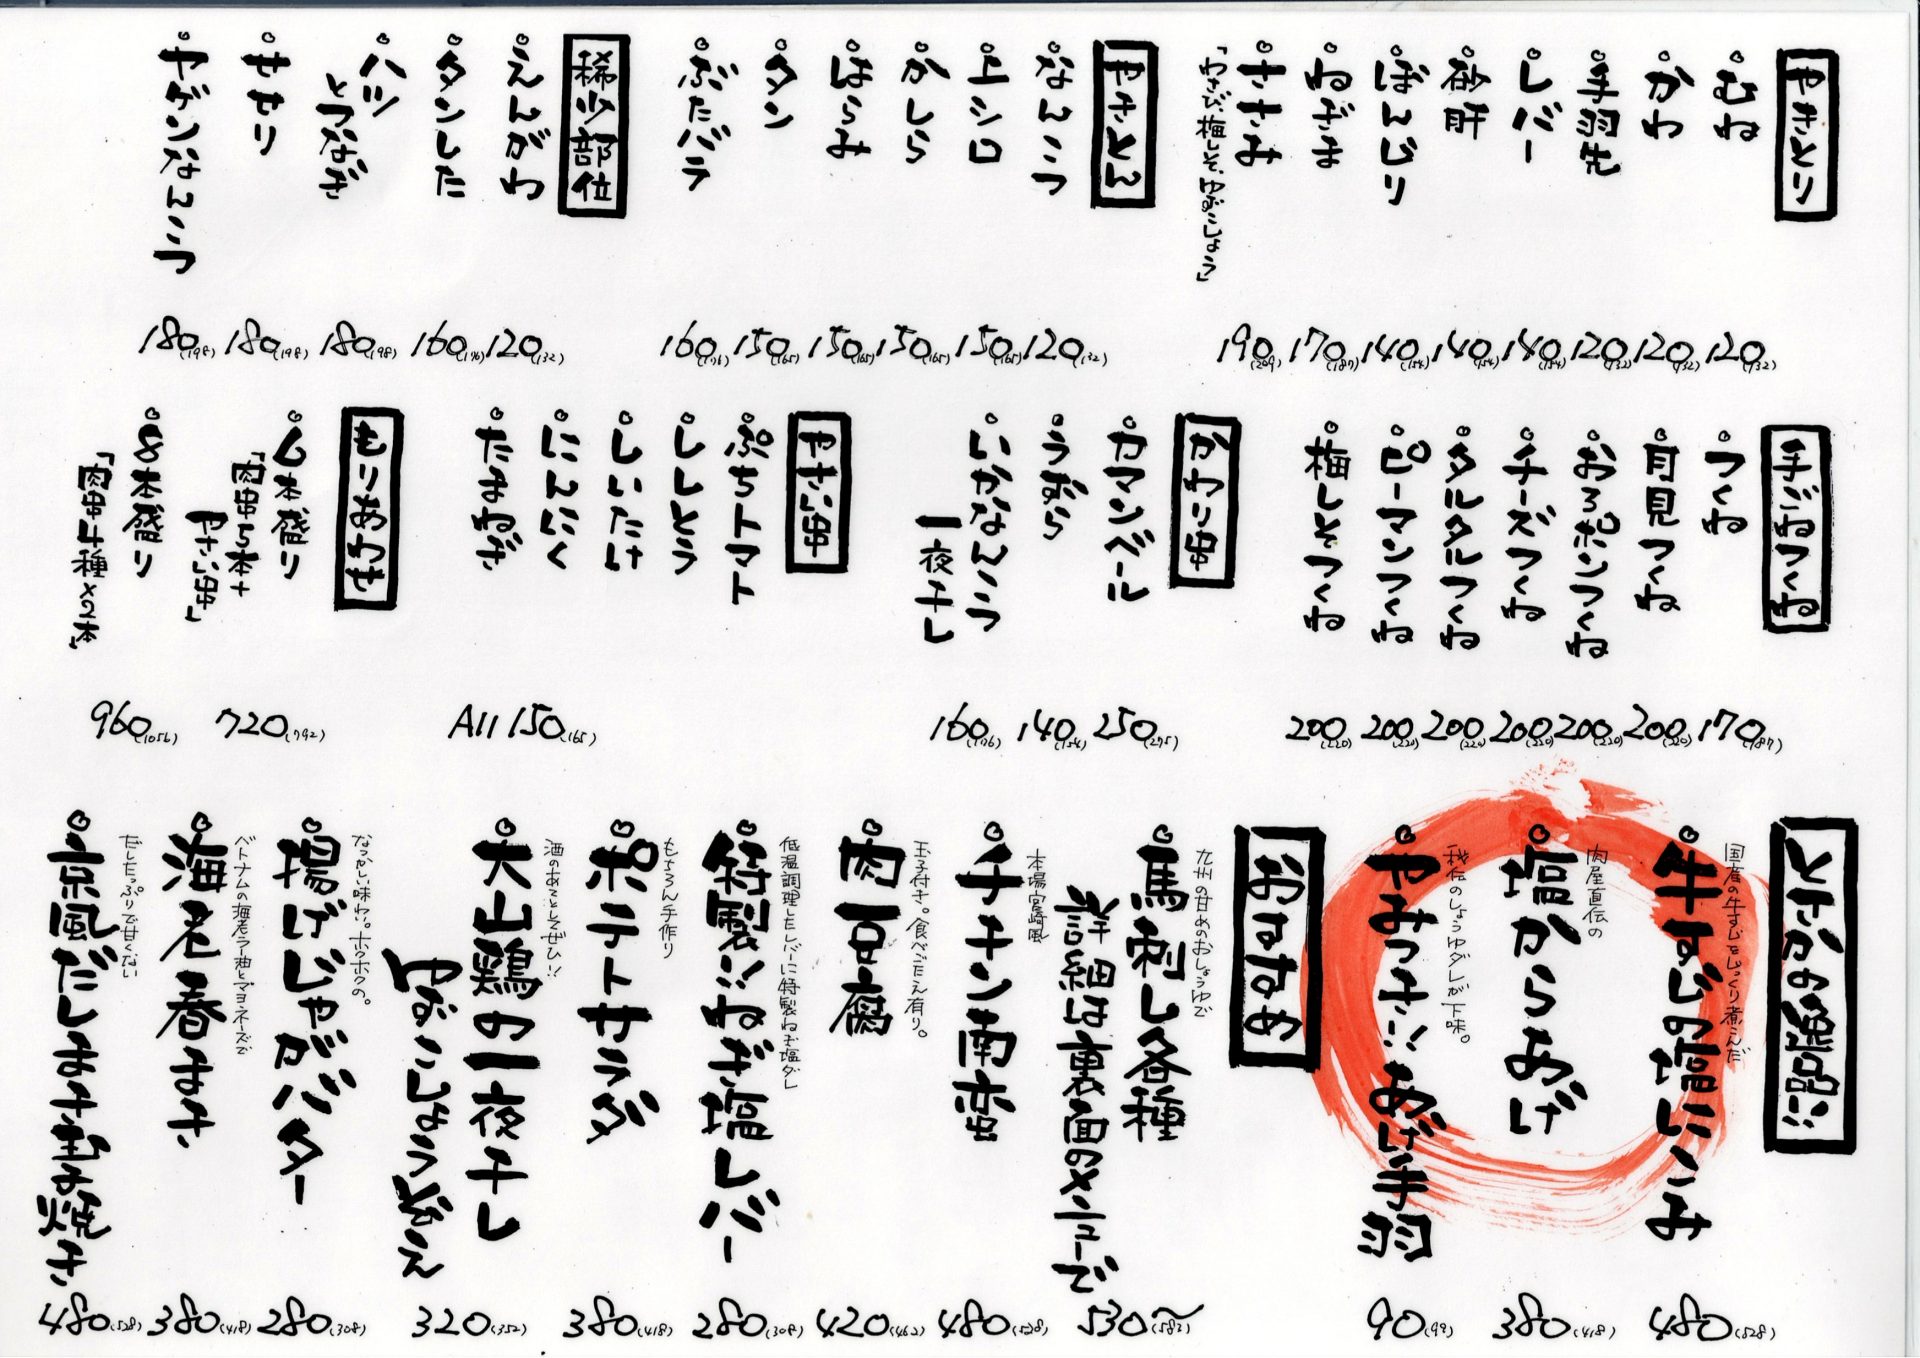 やきとり
むね 120(132)
かわ 120(132)
手羽先 120(132)
レバー 140(154)
砂肝 140(154)
ぼんじり 140(154)
ねぎま 170(187)
ささみ 190(209)
「わさび、梅しそ、ゆずこしょう」
やきとん
なんこつ 120(132)
上シロ 150(165)
かしら 150(165)
はらみ 150(165)
タン 150(165)
ぶたバラ 160(176)
稀少部位
えんがわ 120(132)
タンした 160(176)
ハツ
とつなぎ 180(198)
せせり 180(198)
ヤゲンなんこつ 180(198)
手ごねつくね
つくね 170(187)
月見つくね 200(220)
おろポンつくね 200(220)
チーズつくね 200(220)
タルタルつくね 200(220)
ピーマンつくね 200(220)
梅しそつくね 200(220)
かわり串
カマンベール 250(275)
うずら 140(154)
いかなんこつ
一夜干し 160(176)
やさい串
ぷちトマト
ししとう
しいたけ
にんにく
たまねぎ
All 150(165)
もりあわせ
6本盛り 720(792)
「肉串5本+
やさい串」
8本盛り 960(1056)
「肉串4種×2本」
ときかの逸品!!
国産の牛すじをじっくり煮こんだ
牛すじの塩にこみ 480(528)
肉屋直伝の
塩からあげ 380(418)
秘伝のしょうゆダレが下味。
やみつき!!あげ手羽 90(99)
おすすめ
九州の甘めのおしょうゆで
馬刺し各種
詳細は裏面のメニューで 530〜(583)
本場宮崎風
チキン南蛮 480(528)
玉子付き。食べごたえ有り。
肉豆腐 420(462)
低温調理したレバーに特製ねぎ塩ダレ
特製!!ねぎ塩レバー 280(308)
もちろん手作り
ポテトサラダ 380(418)
酒のあてとしてぜひ!!
大山鶏の一夜干し
ゆずこしょうぞえ 320(352)
なつかしい味わい。ホクホクの。
揚げじゃがバター 280(308)
ベトナムの海老ラー油とマヨネーズで
海老春まき 380(418)
だしたっぷりで甘くない
京風だしまき卵焼き 480(528)